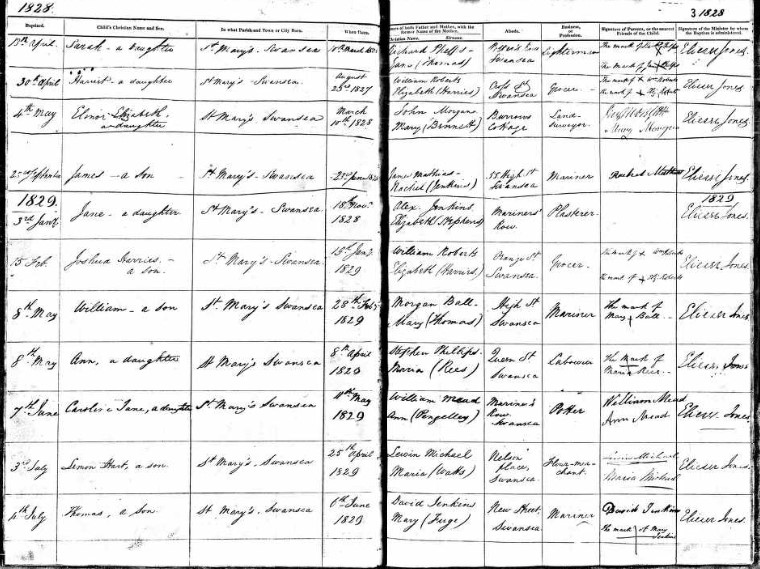 1828.
3 1828
Baptized.
Child's Christian Name and Son.
In what Parish and Town or City Born.
When Born.
Names of both Father and Mother, with the former Name of the Mother.
Christian Name. Surname.
Abode.
Business, or Profession.
Signature of Parents, or the nearest Friends of the Child.
Signature of the Minister by whom the Baptism is administered.
13th April Sarah - a daughter St Mary's Swansea 10th March
Jane (Thomas) Swansea Eliezer Jones.
30th April Harriet - a daughter St Mary's Swansea August 23d 1827
William Roberts
Elizabeth (Harries) Cross St Swansea Grocer - Eliezer Jones
4th May Elinor Elizabeth, a daughter St Mary's Swansea March 10th 1828
John Morgan
Mary (Bennett) Burrows Cottage Land-Surveyor Eliezer Jones
James - a son St Mary's - Swansea
Rachel (Jenkins) 55 High St Swansea Mariner Eliezer Jones
1829
1829
3rd Jany Jane - a daughter St Mary's - Swansea 18th Novr. 1828
Alex Jenkins
Elizabeth (Stephens) Mariners' Row. Plasterer - Eliezer Jones.
15 Feb. Joshua Harries - a son. St Mary's - Swansea 13th Jany 1829
William Roberts
Elizabeth (Harries) Orange St Swansea. Grocer - Eliezer Jones.
8th May William - a son St. Mary's Swansea 28th Feby 1829
Morgan Ball -
Mary (Thomas) High St Swansea Mariner The mark of Mary + Ball - Eliezer Jones
8th May Ann, a daughter St Mary's Swansea 8th April 1829
Stephen Phillips -
Maria (Rees) Queen St Swansea Labourer The Mark of Maria Rees - Eliezer Jones
7th June Caroline Jane, a daughter St Mary's Swansea 11th May 1829
William Mead
Ann (Pengelley) Mariner's Row Swansea Potter
William Mead
Ann Mead Eliezer Jones.
3rd July Lemon Hart, a son. St Mary's Swansea 25th April 1829
Lewin Michael
Maria (Watts) Nelson place, Swansea.
Maria Michael Eliezer Jones.
4th July Thomas, a son. St Mary's Swansea 6th June 1829
David Jenkins
Mary (Fuge) New Street, Swansea Mariner
David Jenkins
the mark + of Mary Jenkins Eliezer Jones.